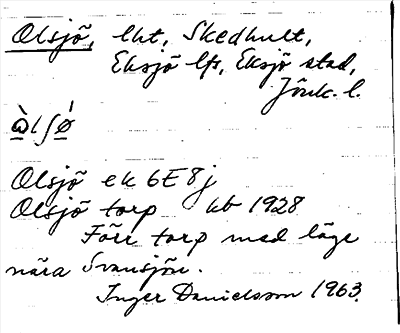 Olsjö, lht, Skedhult,
Eksjö lfs, Eksjö stad,
Jönk. l.
ὼlʃǿ
Olsjö ek 6E8j
Olsjö torp kb 1928
Förr torp med läge
nära Svansjön.
Inger Danielsson 1963.